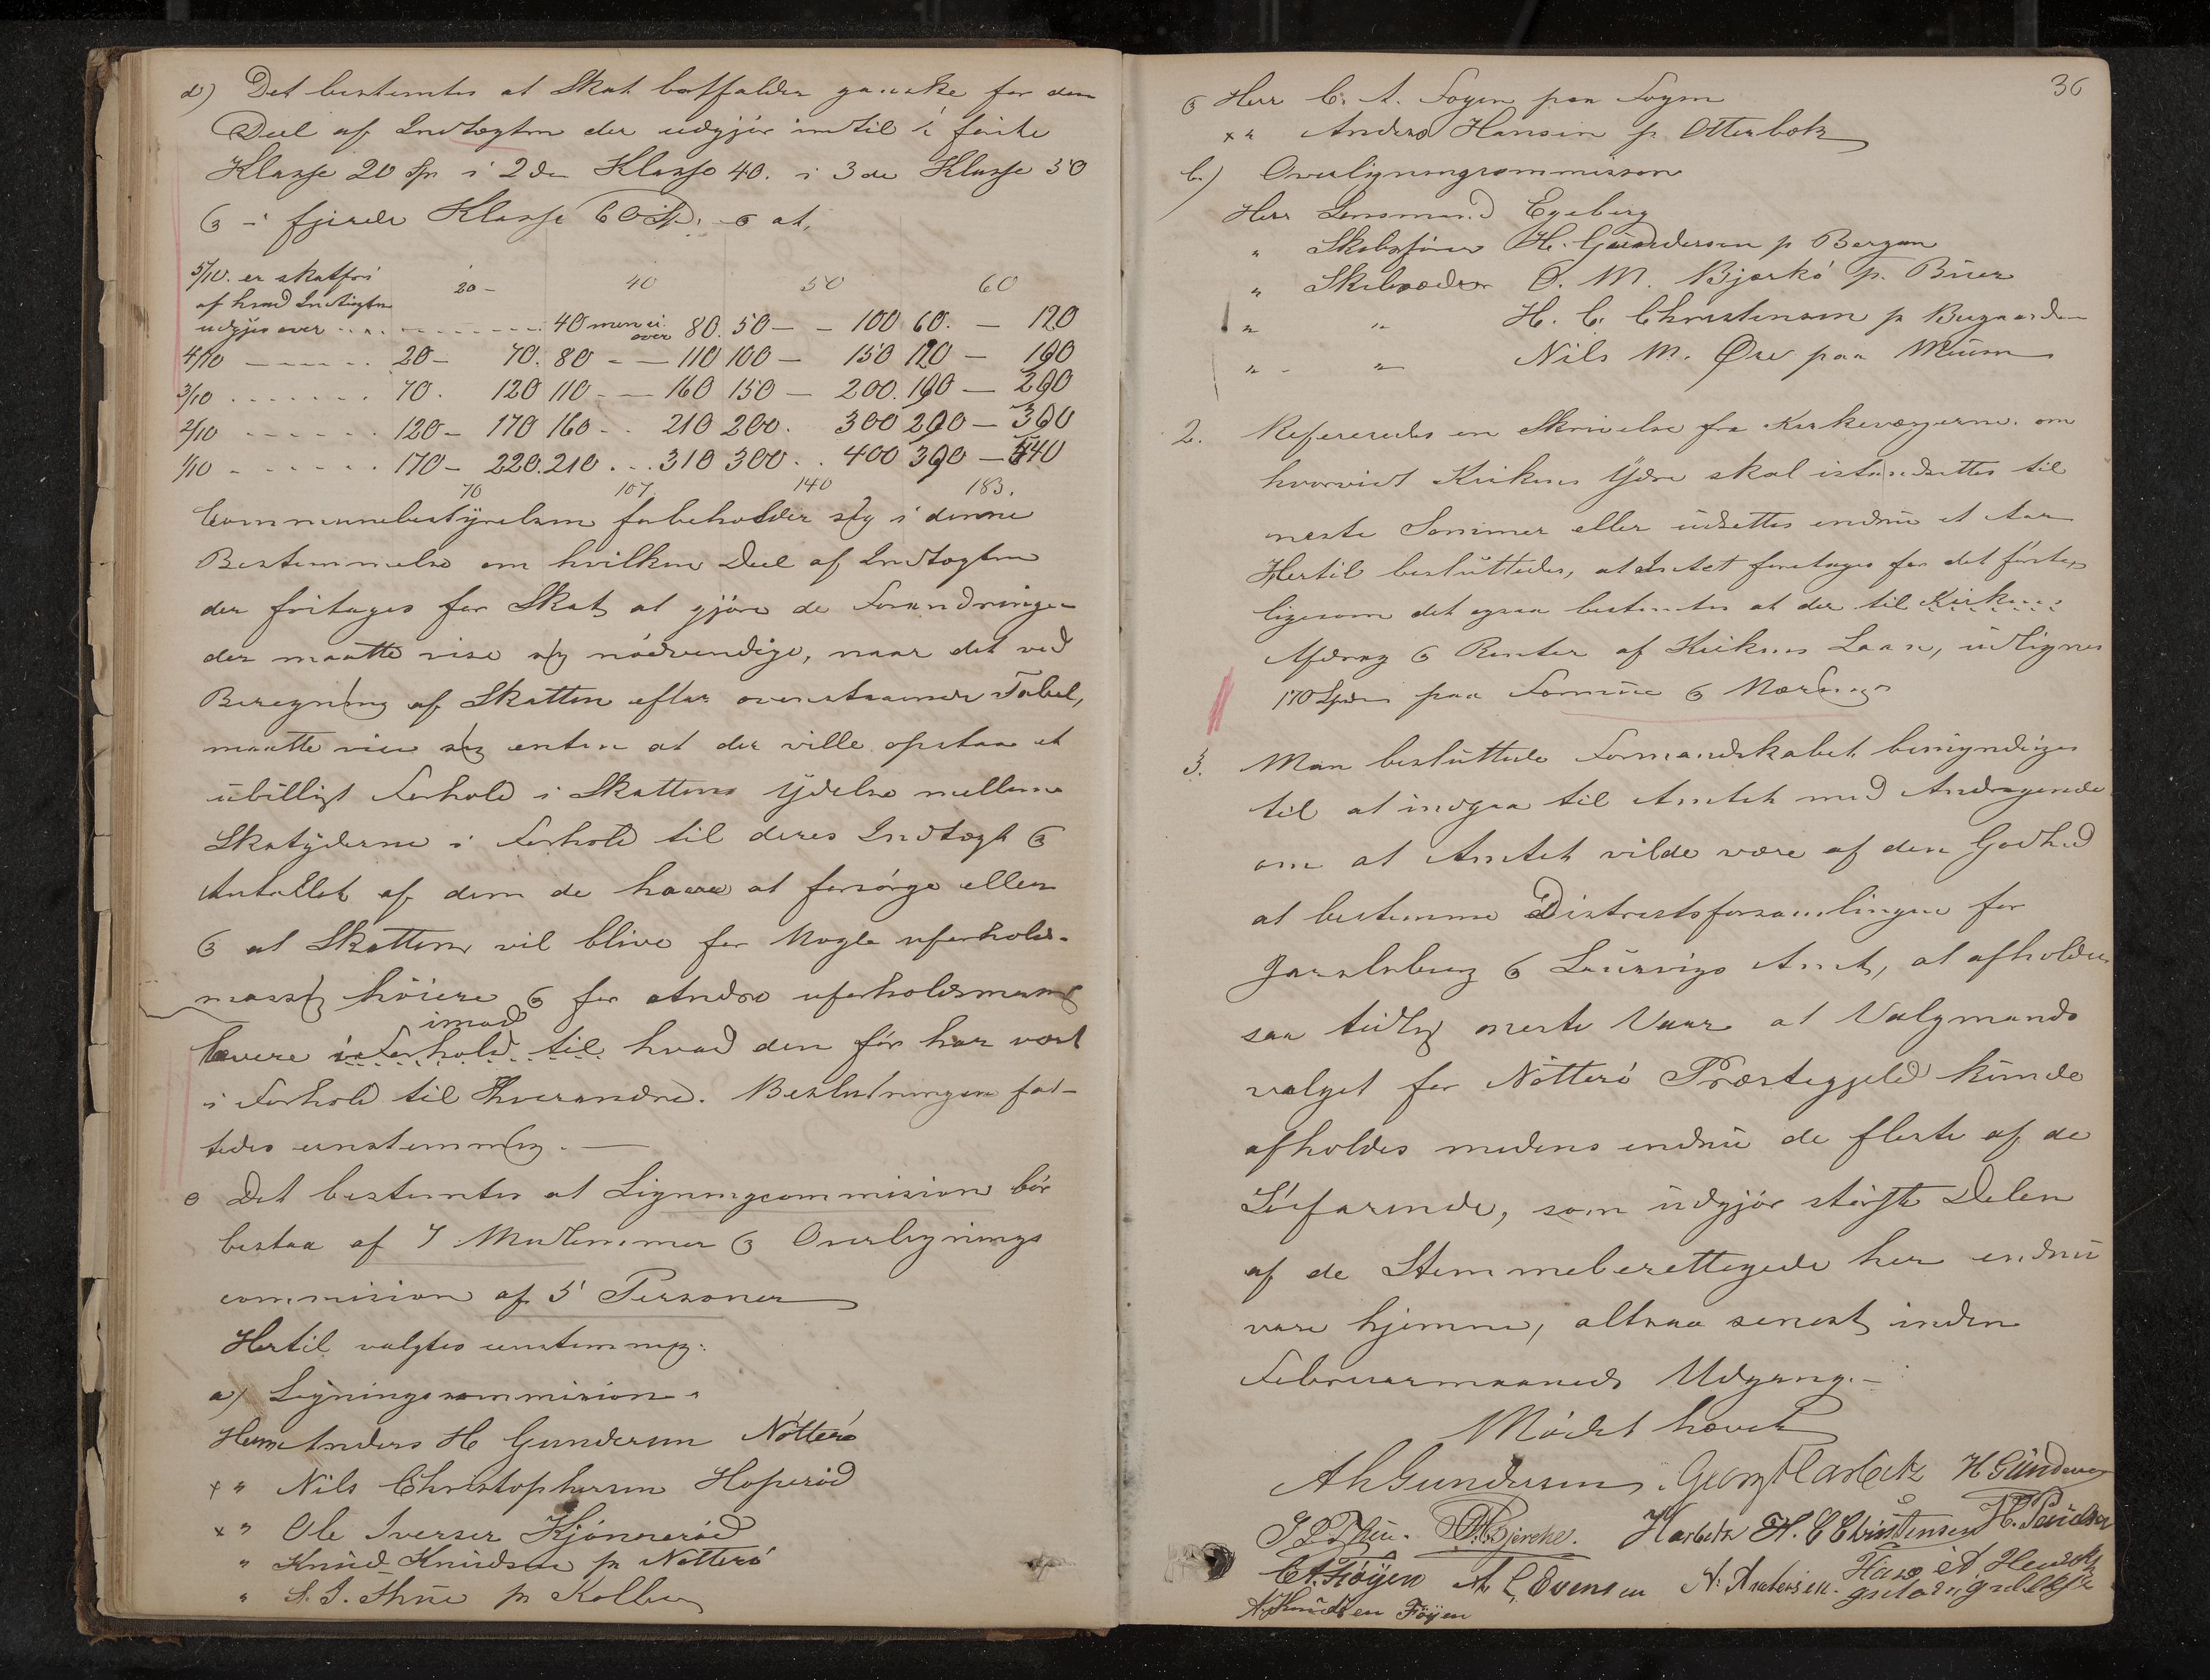 d) Det bestemtes at Skat bortfalder ganske for den
Deel af Indtægten der udgjør indtil i første
Klasse 20 Sp i 2den Klasse 40. i 3de Klasse 50
& i fjerde Klasse 60 Sp. & at,
5/10. er skatfri
af hvad Indtægten 20 - 40 50 60
udgjør over .... 40 men ei over 80. 50 - - 100 60. - 120
4/10 - - - - - 20 - 70. 80 - - 110 100 - 150 120 - 190
3/10 . . . . . . . 70. 120 110 - - 160 150 - 200. 190 - 290
2/10 - - - - - - 120 - 170 160 - . 210 200. 300 290 - 390
1/10 - . . . . . . 170 - 220. 210 . . . 310 300 . . 400 390 - 540
70 107 140 183.
Communebestyrelsen forbeholder sig i denne
Bestemmelse om hvilken Deel af Indtægten
der fritages for Skat at gjøre de Forandringer
der maatte vise sig nødvendige, naar det ved
Beregning af Skatten efter ovenstaaende Tabel,
maatte vise sig enten at der ville opstaa et
ubilligt Forhold i Skattens Ydelse mellem
Skatyderne i Forhold til deres Indtægt &
Antallet af dem de have at forsørge eller
& at Skatten vil blive for Nogle uforholds-
massig høiere & for Andre uforholdsmæssig
imod
lavere i Forhold til hvad den før har vært
i Forhold til Hverandre. Beslutningen fat-
tedes enstemmig. —
e Det bestemtes at Ligningscommision bør
bestaa af 7 Medlemmer & Overlignings
commision af 5 Personer
Hertil valgtes enstemmig:
a) Ligningscommision
Herr Anders H Gundersen Nøtterø
+ " Nils Christophersen Hoperød
+ " Ole Iversen Kjønnerød
" Knud Knudsen p Nøtterø
" S. J. Thue p Kolberg
36
& Herr C. A. Føyen paa Føyen
+ " Anders Hansen p. Otterbæk
b.) Overligningscommission
Herr Lensmand Egeberg
" Skibsfører H. Gundersen p Bergan
" Skibsreder O. M. Bjørkø p. Buer
" " H. C. Christensen p Buegaarden
" - " Nils M. Øre paa Meum
2. Refereredes en Skrivelse fra Kirkeværgerne. om
hvorvidt Kirkens Ydre skal istandsættes til
neste Sommer eller udsættes endnu et Aar
Hertil besluttedes, at Intet foretages for det første,
ligesom det ogsaa bestemtes at der til Kirkens
Afdrag & Renter af Kirkens Laan, udlignes
170 Spdlr paa Formue & Næring
3. Man besluttede Formandskabet bemyndiges
til at indgaa til Amtet med Andragende
om at Amtet vilde være af den Godhed
at bestemme Districtsforsamlingen for
Jarlsberg & Laurvigs Amt, at afholdes
saa tidlig neste Vaar at Valgmands
valget for Nøtterø Præstegjeld kunde
afholdes medens endnu de fleste af de
Søfarende, som udgjør største Delen
af de Stemmeberettigede her endnu
vare hjemme, altsaa senest inden
Februarmaaneds Udgang. —
Mødet hævet
AhGundersen. Georg Harbitz H Gundersen
S J Thue. Bjerche. Harbitz H. C Christensen H. Paulsen
CA. Føyen A L Evensen N: Andersen. Hans A. Henriks
A. Knudsen Føyen